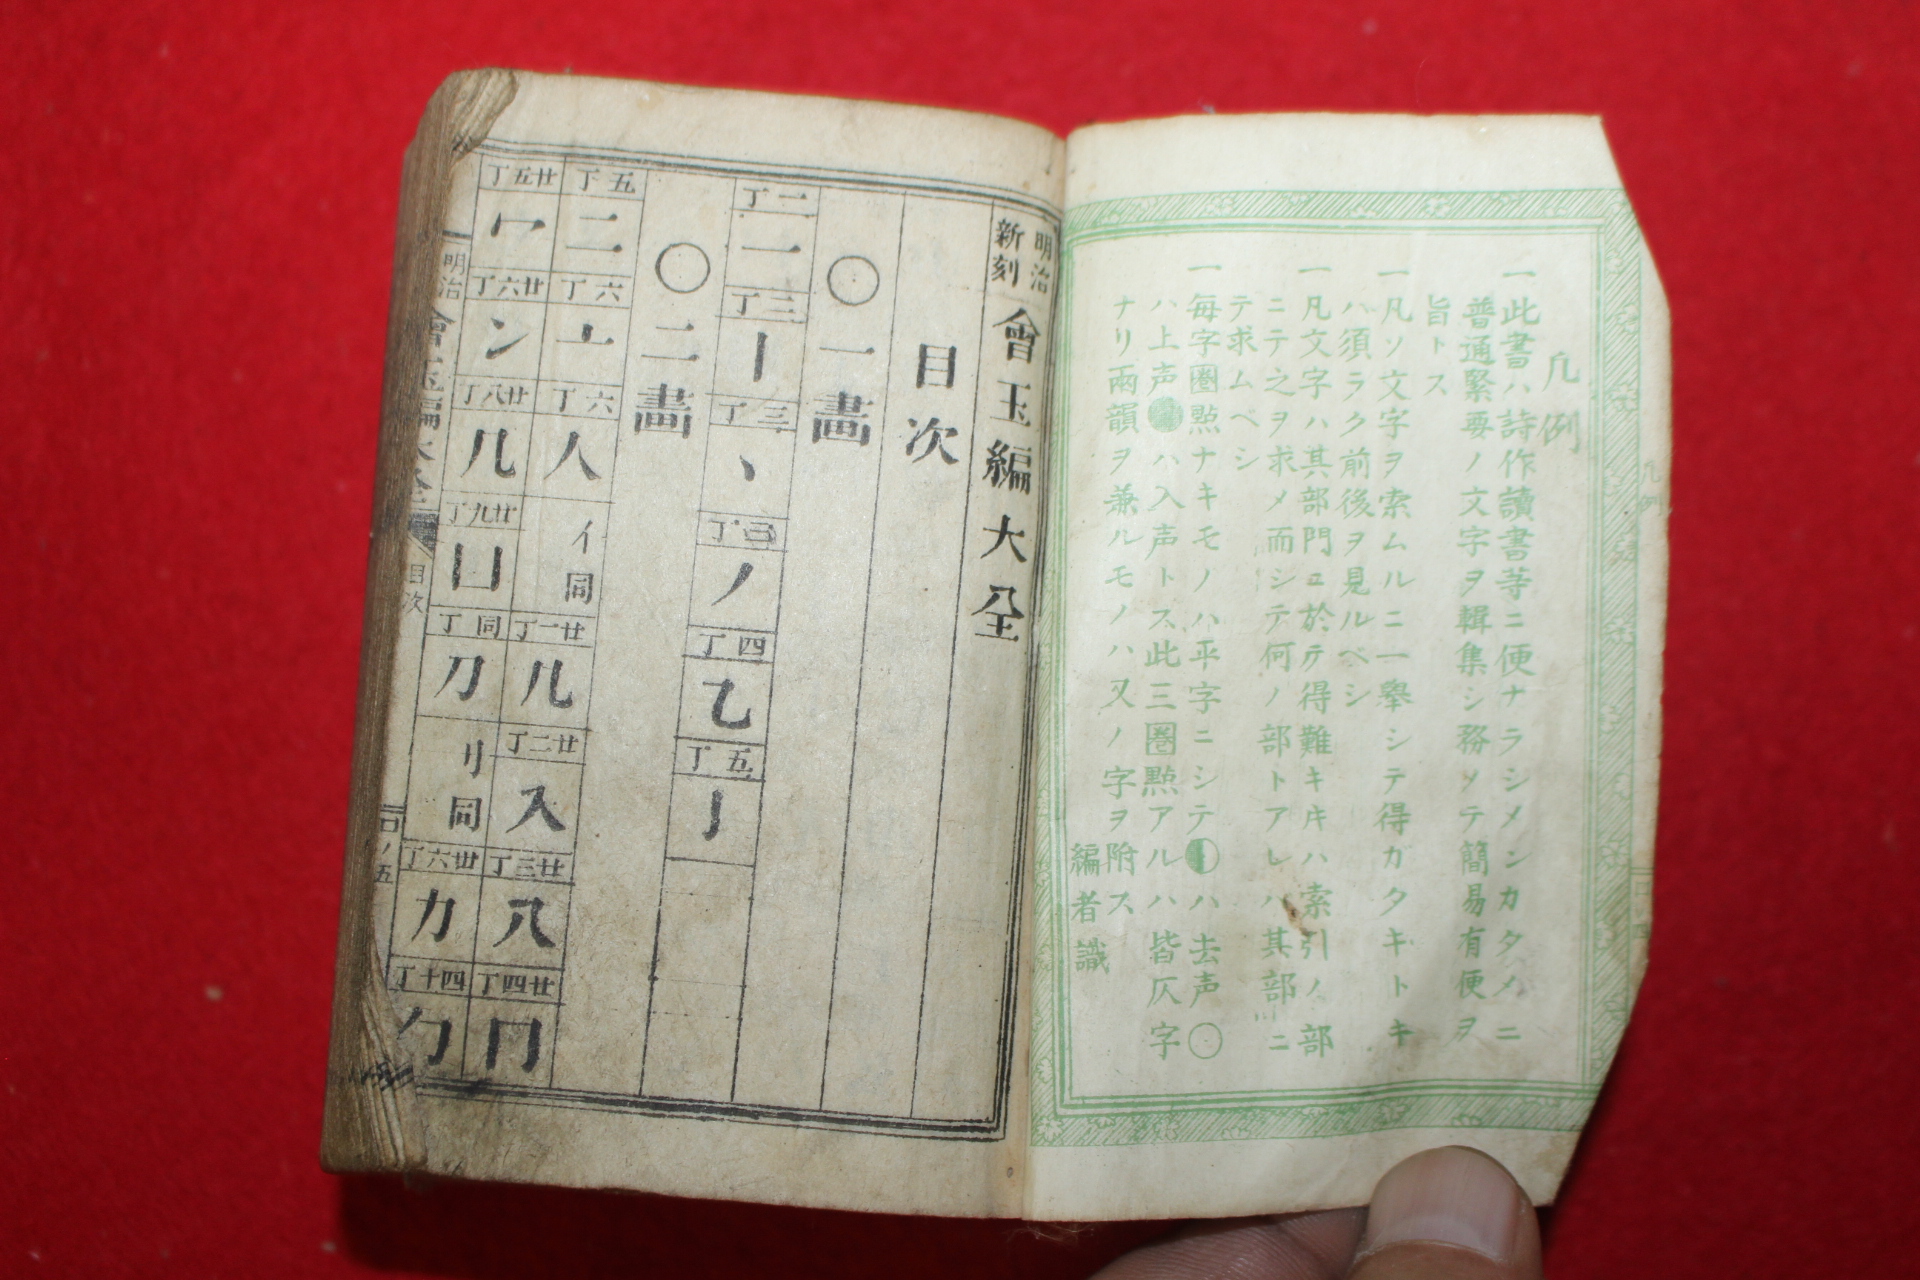 凡例
一此書ハ詩作讀書等ニ便ナラシメンカタメニ
普通緊要ノ文字ヲ輯集シ務メテ簡易有便ヲ
旨トス
一凡ソ文字ヲ索ムルニ一擧シテ得ガタキトキ
ハ須ラク前後ヲ見ルベシ
一凡文字ハ其部門ニ於テ得難キ𪜈ハ索引ノ部
ニテ之ヲ求メ而シテ何ノ部トアレハ其部ニ
テ求ムベシ
一每字圏㸃ナキモノハ平字ニシテ◐ハ去声○
ハ上声●ハ入声トス此三圏㸃アルハ皆仄字
ナリ兩韻ヲ兼ルモノハ又ノ字ヲ附ス
編者識
凡例
明治
新刻
會玉編大全
目次
○一畫
二丁
一
三丁
丨
三丁
丶
丁
ノ
四丁
乙
五丁
亅
○二畫
五丁
二
六丁
亠
六丁
人
亻同
廿一丁
儿
廿二丁
入
廿三丁
八
廿四丁
冂
廿五丁
冖
廿六丁
冫
廿八丁
几
廿九丁
凵
同丁
刀
刂同
卅六丁
力
四十丁
勹
明治
會玉編大全
目次
口ノ五